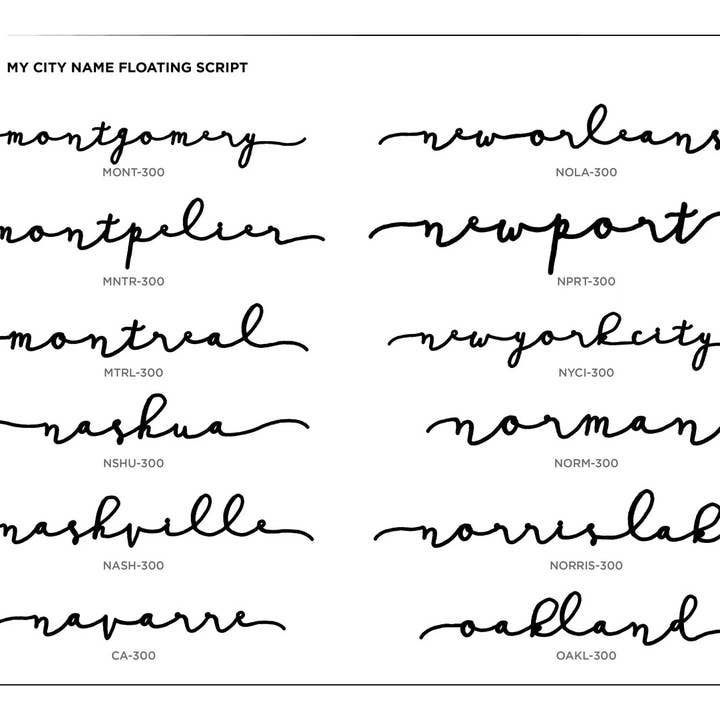 MY CITY NAME FLOATING SCRIPT
montgomery
MONT-300
neworleans
NOLA-300
montpelier
MNTR-300
newport
NPRT-300
montreal
MTRL-300
newyorkcity
NYCI-300
nashua
NSHU-300
norman
NORM-300
nashville
NASH-300
norrislak
NORRIS-300
navarre
CA-300
oakland
OAKL-300